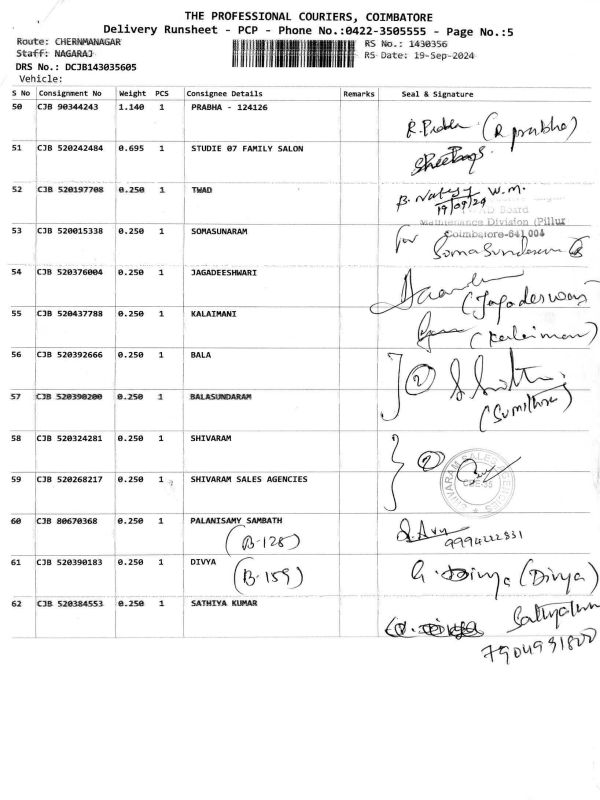 THE PROFESSIONAL COURIERS, COIMBATORE
Delivery Runsheet - PCP - Phone No.:0422-3505555 - Page No.:5
Route: CHERNMANAGAR RS No.: 1430356
Staff: NAGARAJ RS Date: 19-Sep-2024
DRS No.: DCJB143035605
Vehicle:
S No Consignment No Weight PCS Consignee Details Remarks Seal & Signature
50 CJB 90344243 1.140 1 PRABHA - 124126
(R prabha)
51 CJB 520242484 0.695 1 STUDIE 07 FAMILY SALON
52 CJB 520197708 0.250 1 TWAD
W.M.
19/09/24
Board
Maintenance Division (Pillur
53 CJB 520015338 0.250 1 SOMASUNARAM
Coimbatore-641 004
for
Somasundaram
54 CJB 520376004 0.250 1 JAGADEESHWARI
(Jagadeswari
55 CJB 520437788 0.250 1 KALAIMANI
(Kalaimani)
56 CJB 520392666 0.250 1 BALA
2
57 CJB 520390200 0.250 1 BALASUNDARAM
(Sumithra)
58 CJB 520324281 0.250 1 SHIVARAM
2
59 CJB 520268217 0.250 1 SHIVARAM SALES AGENCIES
SHIVARAM SALES AGENCIES
60 CJB 80670368 0.250 1 PALANISAMY SAMBATH
(B-128)
9994222831
61 CJB 520390183 0.250 1 DIVYA
(B-159)
G. Divya (Divya)
62 CJB 520384553 0.250 1 SATHIYA KUMAR
7904931800